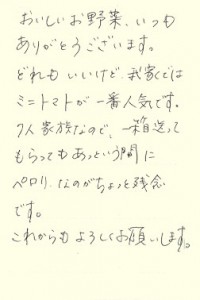 おいしいお野菜、いつも
ありがとうございます。
どれもいいけど、我家では
ミニトマトが一番人気です。
7人家族なので、一箱送って
もらってもあっという間に
ペロリ、なのがちょっと残念
です。
これからもよろしくお願いします。